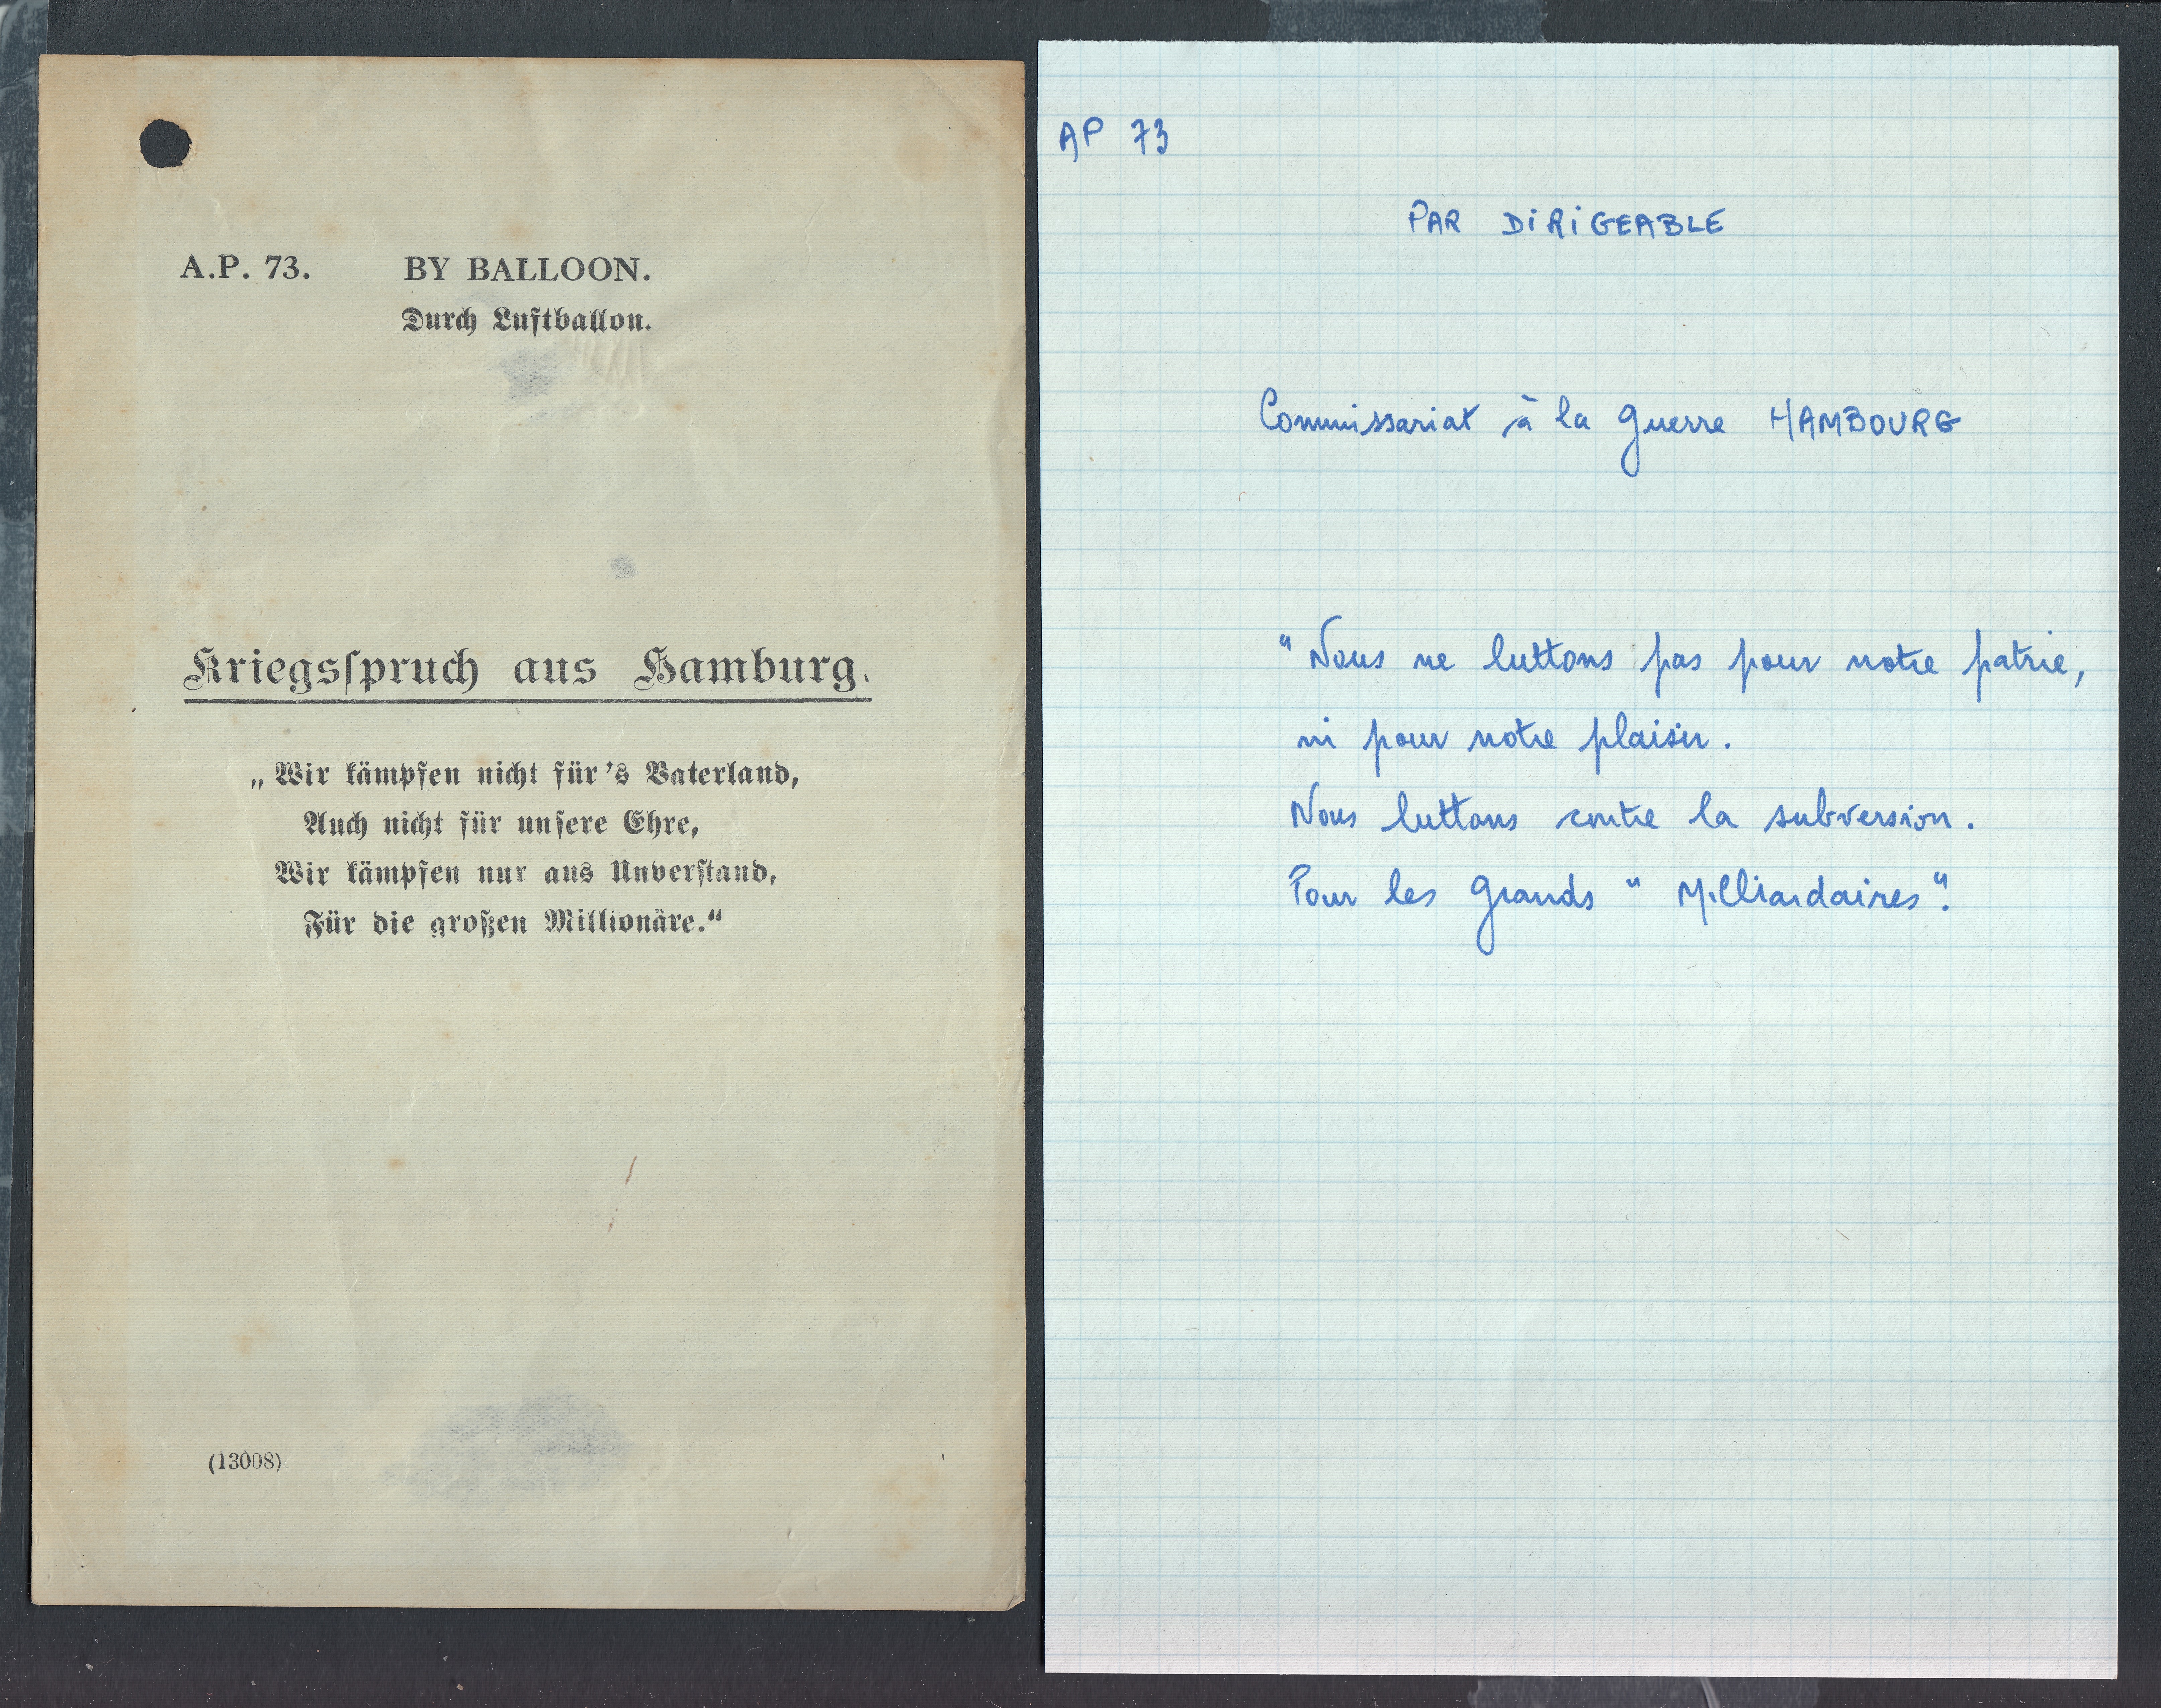 A.P. 73. BY BALLOON.
Durch Luftballon.
Kriegsspruch aus Hamburg.
„Wir kämpfen nicht für's Vaterland,
Auch nicht für unsere Ehre,
Wir kämpfen nur aus Unverstand,
Für die großen Millionäre.“
(13008)
AP 73
PAR DIRIGEABLE
Commissariat à la guerre HAMBOURG
"Nous ne luttons pas pour notre patrie,
ni pour notre plaisir.
Nous luttons contre la subversion.
Pour les grands " Milliardaires".